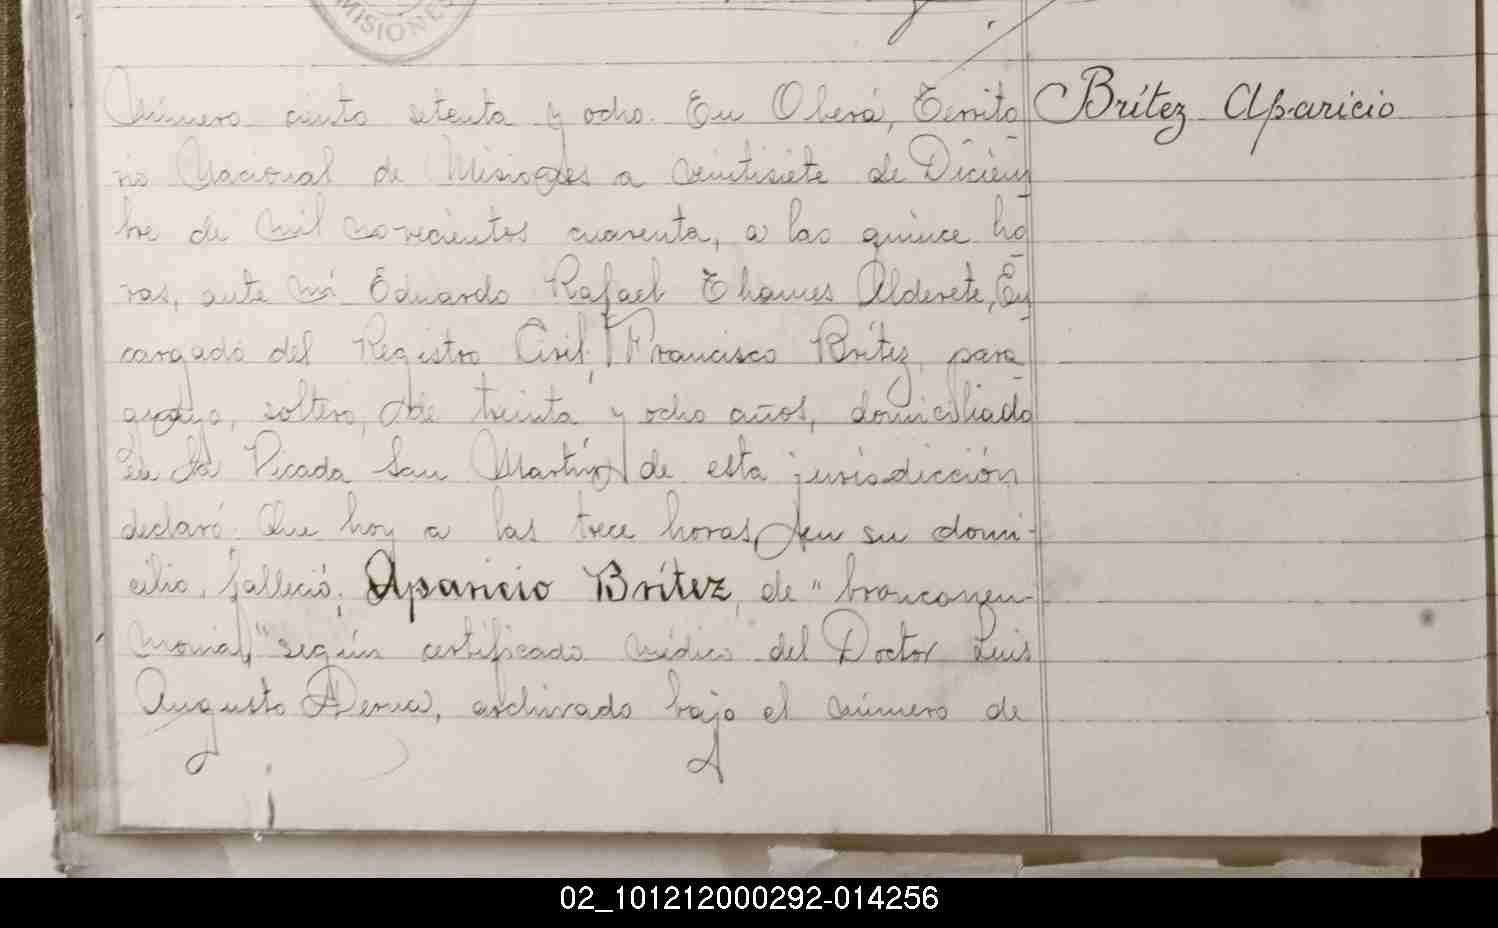 MISIONES
Número ciento setenta y ocho. En Oberá, Territo
Brítez Aparicio
rio Nacional de Misiones a veintisiete de Diciem
bre de mil novecientos cuarenta, a las quince ho
ras, ante mí Eduardo Rafael Thames Alderete, En
cargado del Registro Civil, Francisco Brítez, para
guayo, soltero, de treinta y ocho años, domiciliado
en la Picada San Martín de esta jurisdicción
declaró: Que hoy a las trece horas, en su domi-
cilio, falleció, Aparicio Brítez, de "bronconeu-
monia," según certificado médico del Doctor Luis
Augusto, archivado bajo el número de
02_101212000292-014256